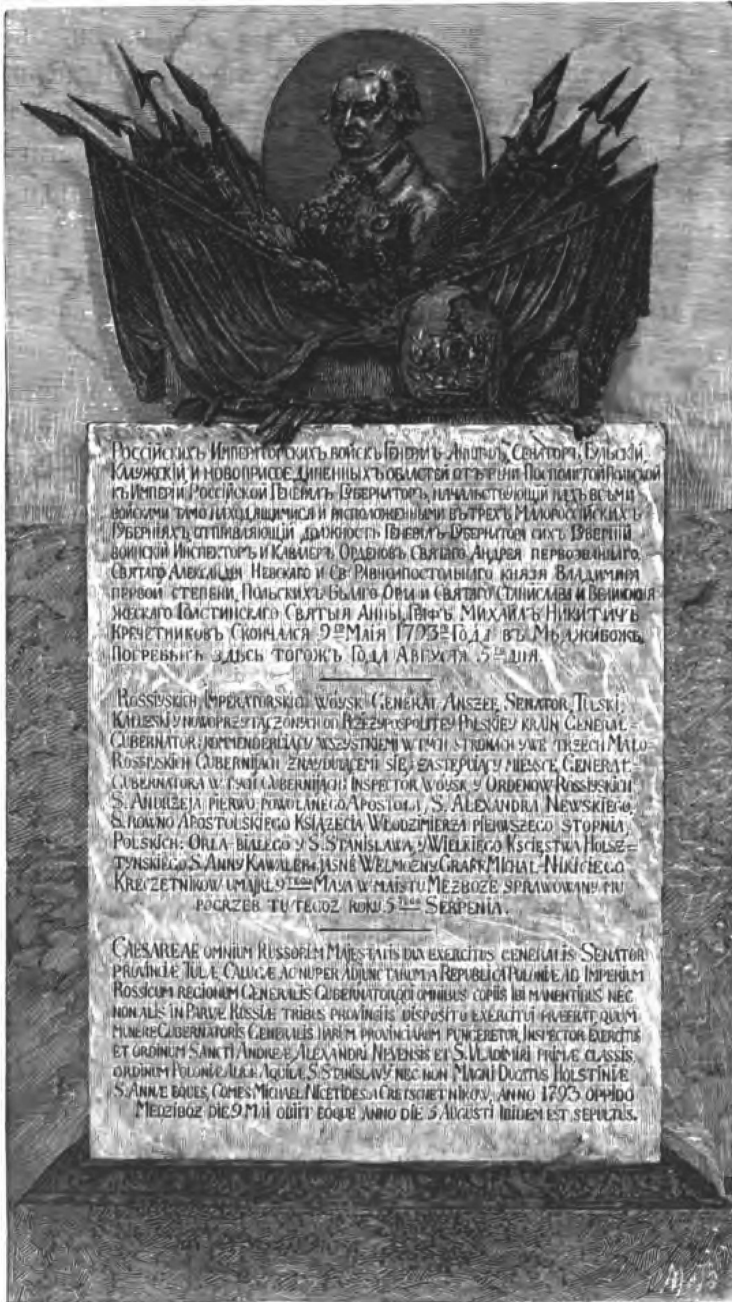 Россійскихъ Императорскихъ войскъ Генералъ-Аншефъ, Сенаторъ, Тульскій,
Калужскій, и новоприсоединенныхъ областей отъ Речи Посполитой Польской
къ Имперіи Россійской Генералъ Губернаторъ, начальствующій надъ всѣми
войсками тамо находящимися и расположенными въ трехъ Малороссійскихъ
Губерніяхъ, отправляющій должность Генералъ-Губернатора сихъ Губерній
воинскій Инспекторъ и Кавалеръ Орденовъ Святаго Андрея первозваннаго,
Святаго Александра Невскаго и Св. Равноапостольнаго князя Владимира
первой степени, Польскихъ Бѣлаго Орла и Святаго Станислава и Великокня
жескаго Голстинскаго Святыя Анны, Графъ Михаилъ Никитичъ
Кречетниковъ Скончался 9го Маія 1793го Года въ Мѣджибожѣ,
погребенъ здѣсь тогожъ Года Августа 5го дня.
Rossyiskich Imperatorskich woysk General Anszef, Senator, Tulski,
Kałuski y nowoprzyłączonych od Rzeczypospolitey Polskiey krain General-
Gubernator; kommenderuiący wszystkiemi w tych stronach y we trzech Mało-
Rossyiskich Gubernijach znayduiącemi się; zastępuiący mieysce General-
Gubernatora w tych Gubernijach; Inspector woysk y Ordenow Rossyiskich
S. Andrzeja pierwo powołanego Apostoła, S. Alexandra Newskiego,
S. rowno Apostolskiego Książecia Włodzimierza pierwszego stopnia,
Polskich: Orła-białego y S. Stanisława, y Wielkiego Kscięstwa Holsz-
tynskiego S. Anny Kawaler; jasnie Wielmożny Graff Michał-Nikiciego
Kreczetnikow umarł 9tego Maya w maistu Mezboże sprawowany mu
pogrzeb tu tegoż roku 5tego Serpenia.
Caesareae omnium Russorum Majestatis dux exercitus generalis Senator
provinciæ Tulæ, Calugæ ac nuper adjunctarum a Republica Poloniæ ad Imperium
Rossicum regionum Generalis Gubernator, qui omnibus copiis ibi manentibus nec
non aliis in Parvæ Rossiæ tribus provinciis disposito exercitui præerat, quum
munere Gubernatoris Generalis harum provinciarum fungeretur, Inspector Exercitus
et ordinum Sancti Andreæ, Alexandri Nevensis et S. Vladimiri primæ classis,
ordinum Poloniæ Albæ Aquilæ, S. Stanislavy nec non Magni Ducatus Holstiniæ
S. Annæ eques, Comes Michael Nicetides a Cretschetnikow, anno 1793 oppido
Medziboz die 9 Maii obiit eoque anno die 5 Augusti ibidem est sepultus.